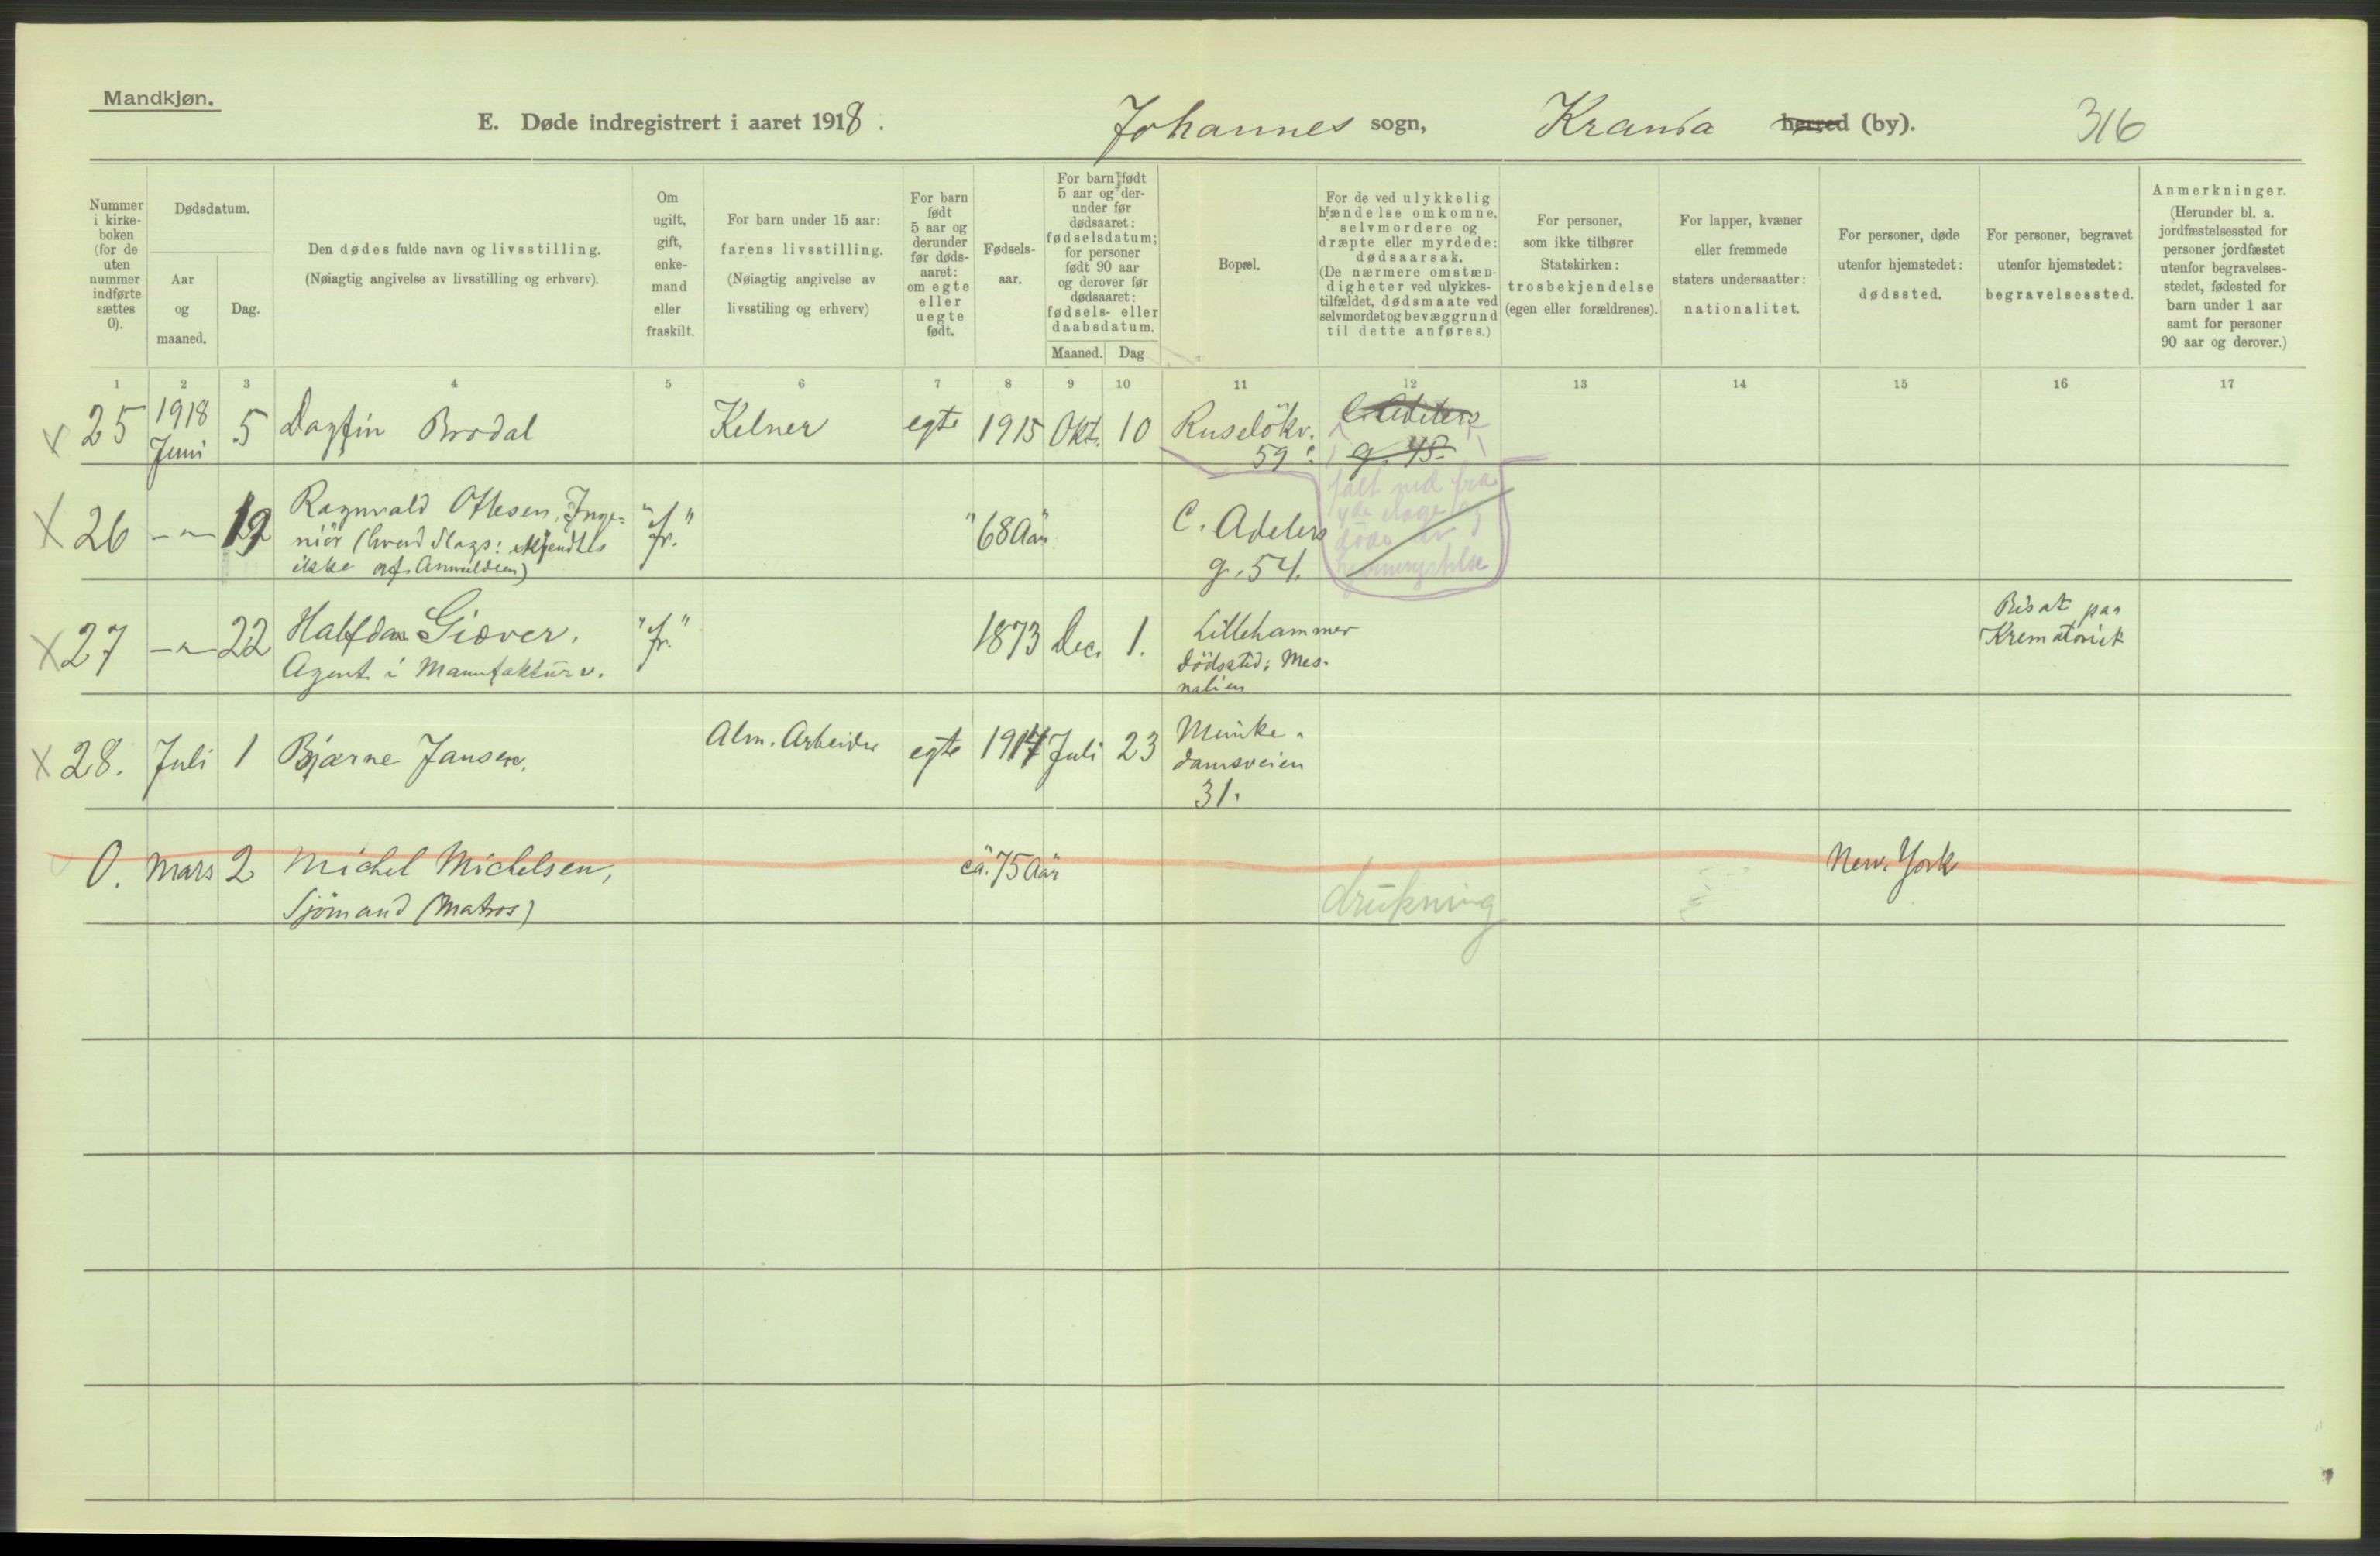 Mandkjøn.
E. Døde indregistrert i aaret 1918.
Johannes sogn,
Krania herred (by).
316
Nummer
i kirke-
boken
(for de
uten
nummer
indførte
sættes
0).
Dødsdatum.
Aar
og
maaned.
Dag.
Den dødes fulde navn og livsstilling.
(Nøiagtig angivelse av livsstilling og erhverv).
Om
ugift,
gift,
enke-
mand
eller
fraskilt.
For barn under 15 aar:
farens livsstilling.
(Nøiagtig angivelse av
livsstiling og erhverv)
For barn
født
5 aar og
derunder
før døds-
aaret:
om egte
eller
uegte
født.
Fødsels-
aar.
For barn født
5 aar og der-
under før
dødsaaret:
fødselsdatum;
for personer
født 90 aar
og derover før
dødsaaret:
fødsels- eller
daabsdatum.
Maaned. Dag
Bopæl.
For de ved ulykkelig
hændelse omkomne,
selvmordere og
dræpte eller myrdede:
dødsaarsak.
(De nærmere omstæn-
digheter ved ulykkes-
tilfældet, dødsmaate ved
selvmordet og bevæggrund
til dette anføres.)
For personer,
som ikke tilhører
Statskirken:
trosbekjendelse
(egen eller forældrenes).
For lapper, kvæner
eller fremmede
staters undersaatter:
nationalitet.
For personer, døde
utenfor hjemstedet:
dødssted.
For personer, begravet
utenfor hjemstedet:
begravelsessted.
Anmerkninger.
(Herunder bl. a.
jordfæstelsessted for
personer jordfæstet
utenfor begravelses-
stedet, fødested for
barn under 1 aar
samt for personer
90 aar og derover.)
1 2 3 4 5 6 7 8 9 10 11 12 13 14 15 16 17
x 25 1918 Juni 5 Dagfin Brodal Kelner egte 1915 Okt. 10 Ruselökv. C. Adelers
59 g. 48
falt ned fra
4de etage og
døde av
X 26 -"- 12 Ragnvald Oftesen, Inge-
niör (hvad slags:
ikke af Anmelderen)
"fr." "68 Aar" C. Adelers
g. 54.
X 27 -"- 22 Halfdan Giæver,
Agent i Manufakturv.
"fr." 1873 Dec. 1. Lillehammer
dödssted: Mes-
nalien
Bisat paa
Krematoriet
X 28. Juli 1 Bjarne Jansen, Alm. Arbeider egte 1917 Juli 23 Munke-
damsveien
31.
0. Mars 2 Michel Michelsen,
Sjömand (Matros)
ca. 75 Aar drukning New. York